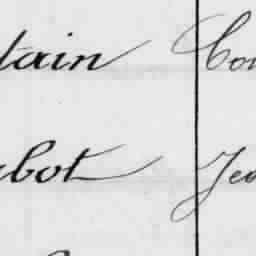 tain Con
bot Jea